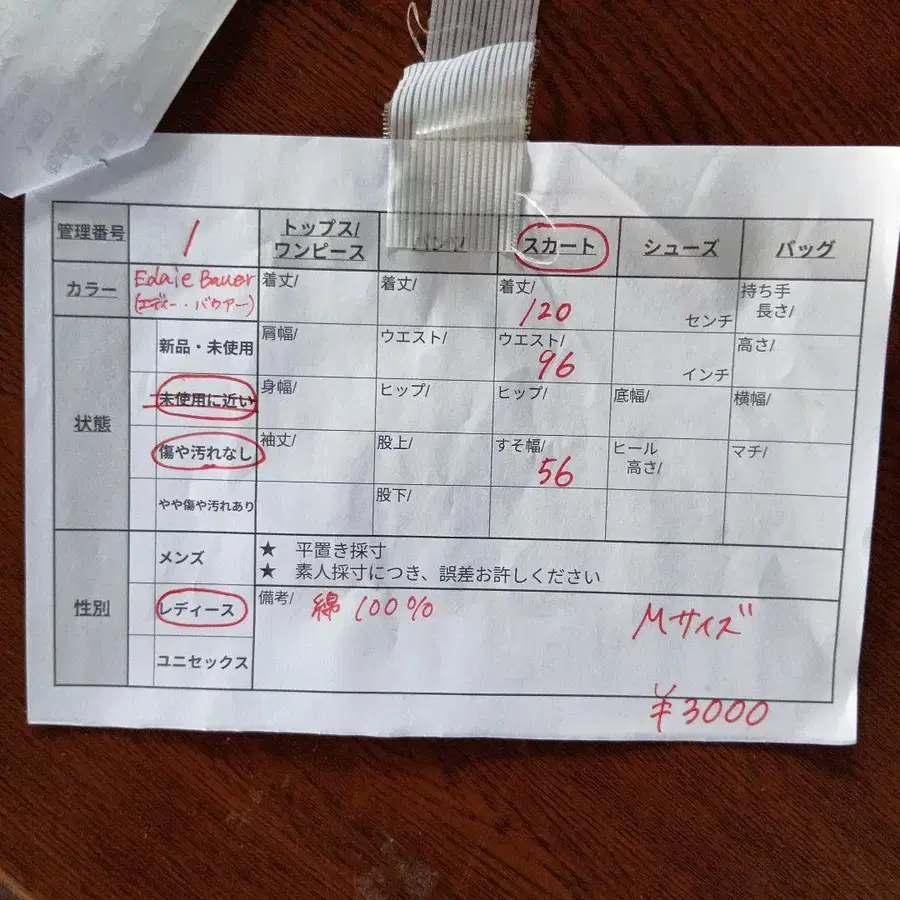 管理番号 1 トップス/ワンピース パンツ スカート シューズ バッグ
カラー Eddie Bauer (エディー・バウアー) 着丈/ 着丈/ 着丈/ 120 センチ 持ち手長さ/
状態 新品・未使用 肩幅/ ウエスト/ ウエスト/ 96 インチ 高さ/
未使用に近い 身幅/ ヒップ/ ヒップ/ 底幅/ 横幅/
傷や汚れなし 袖丈/ 股上/ すそ幅/ 56 ヒール高さ/ マチ/
やや傷や汚れあり 股下/
性別 メンズ ★ 平置き採寸
★ 素人採寸につき、誤差お許しください
レディース 備考/ 綿 100% Mサイズ
ユニセックス
¥3000